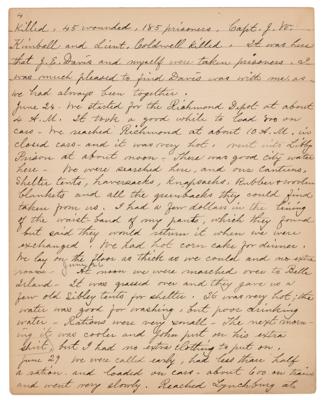 4
Killed, 45 wounded, 185 prisoners, Capt. J. W.
Kimball and Lieut. Coldwell killed. It was here
that J. E. Davis and myself were taken prisoners. I
was much pleased to find Davis was with me, as
we had always been together.
June 24. We started for the Richmond Depot at about
4 A.M. It took a good while to load 800 on
cars. We reached Richmond at about 10 A.M. in
closed cars and it was very hot. Went into Libby
Prison at about moon. There was good city water
here. We were searched here, and our Canteens,
Shelter tents, haversacks, Knapsacks, Rubber & woolen
blankets and all the greenbacks they could find
taken from us. I had a few dollars in the lining
of the waist-band of my pants, which they found
but said they would return it when we were
exchanged. We had hot corn cake for dinner.
We lay on the floor as thick as we could and no extra
room. June At noon we were marched over to Belle
Island. It was grassed over and they gave us a
few old Sibley tents for shelter. It was very hot; the
water was good for washing, but poor drinking
water. Rations were very small. The next morn-
ing it was cooler and John put on his extra
shirt, but I had no extra clothing to put on.
June 29 We were called early, had less than half
a ration and loaded on cars. About 600 on train
and went very slowly. Reached Lynchburg at